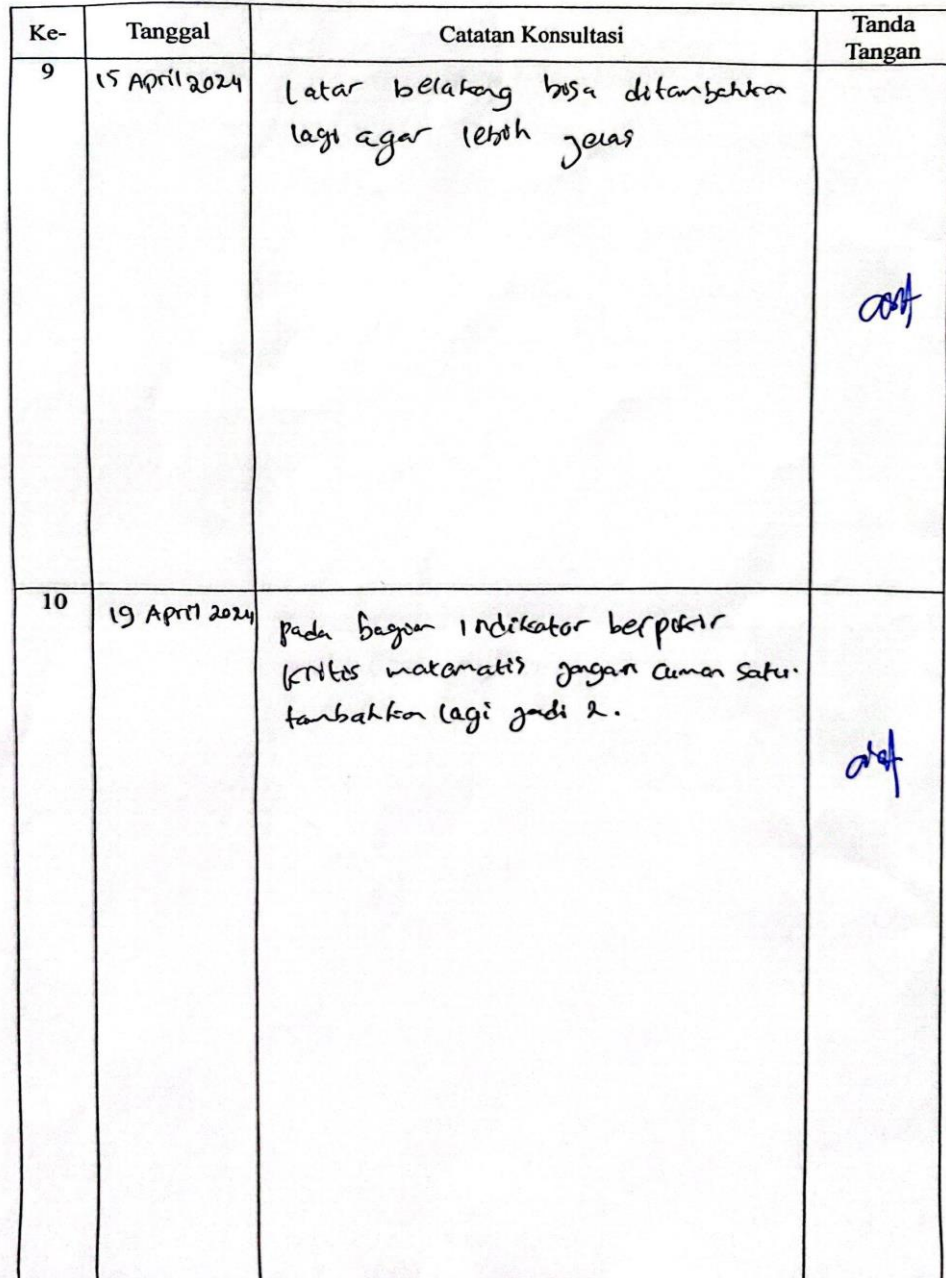 Ke- Tanggal Catatan Konsultasi Tanda
Tangan
9 15 April 2024 Latar belakang bisa ditambahkan
lagi agar lebih jelas
10 19 April 2024 pada bagian indikator berpikir
kritis matamatis jangan cuman satu.
tambahkan lagi jadi 2.